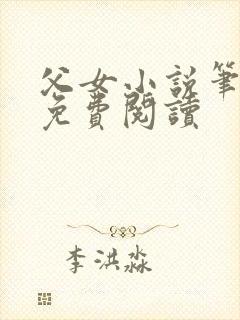 父女小说笔
免费阅读
李洪淼